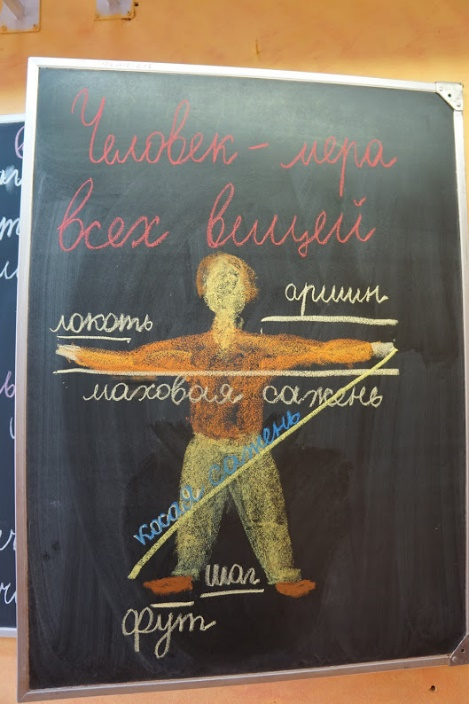 Человек - мера
всех вещей
аршин
локоть
маховая сажень
косая сажень
шаг
фут